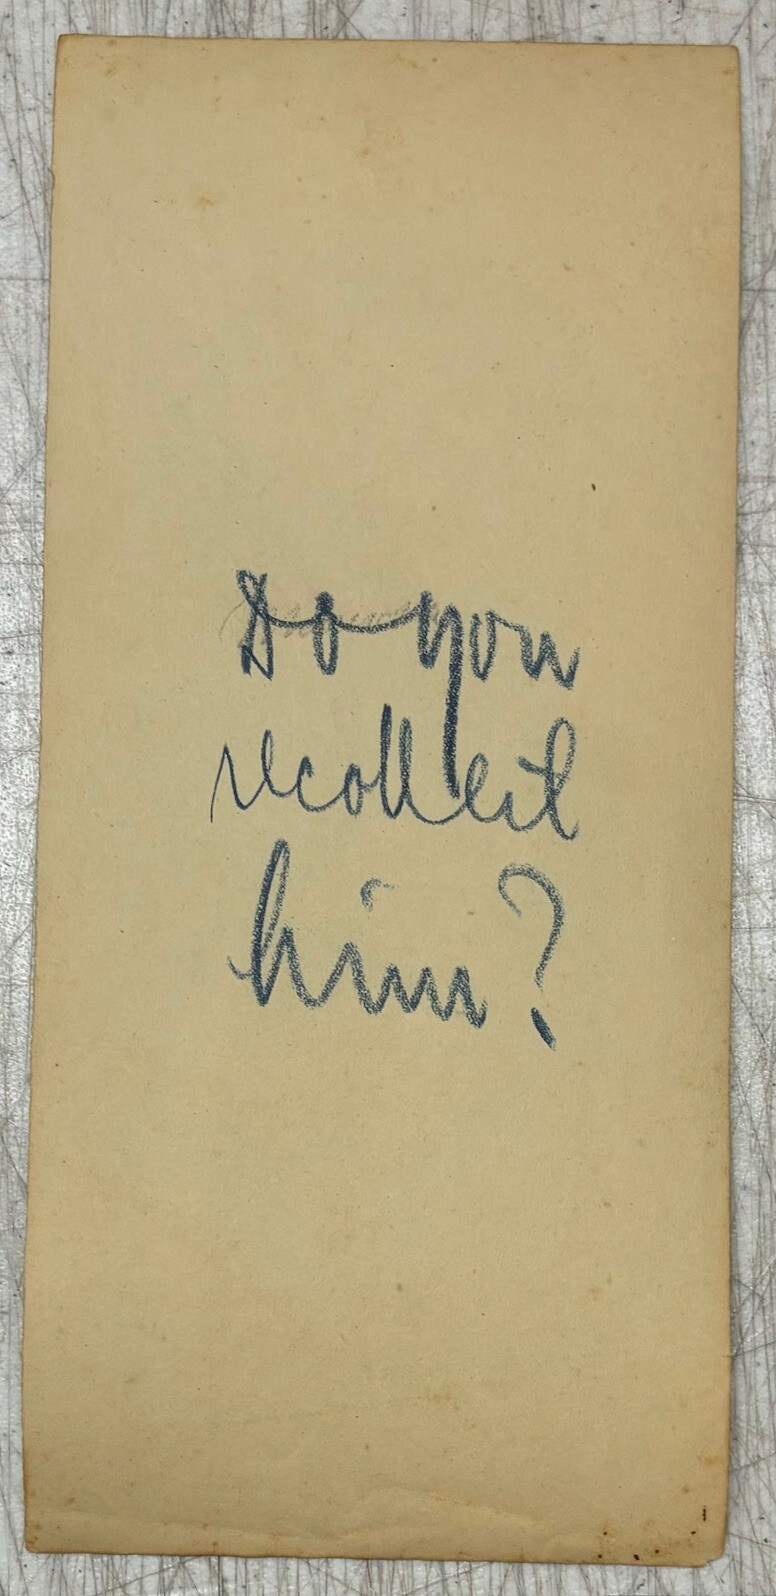 Do you
recollect
him?